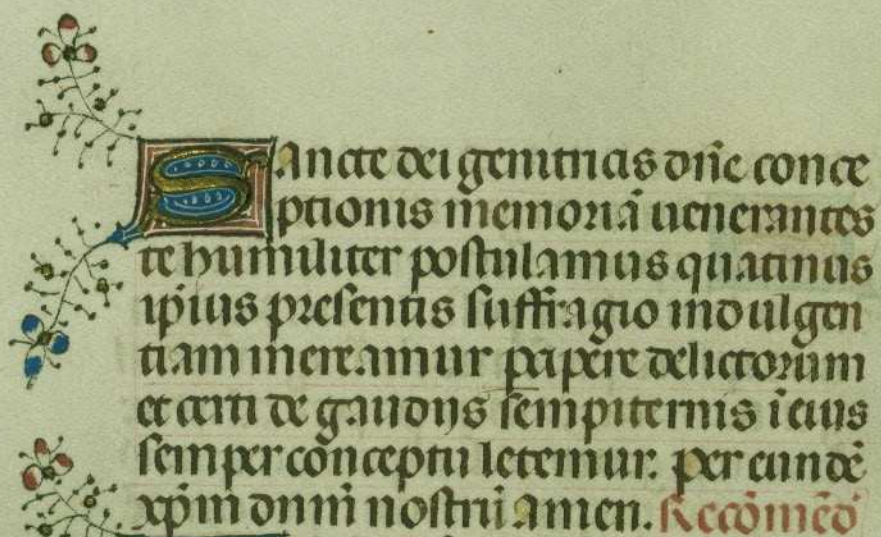 Sancte dei genitricis dñe conce
ptionis memoriã uenerantes
te humiliter postulamus quatinus
ip̃ius presentis suffragio indulgen
tiam mereamur papere delictorum
et certi de gaudijs sempiternis ĩ eius
semper cõnceptu letemur. per eundẽ
xp̃m dnm̃ nostrũ amen. Recõmẽd